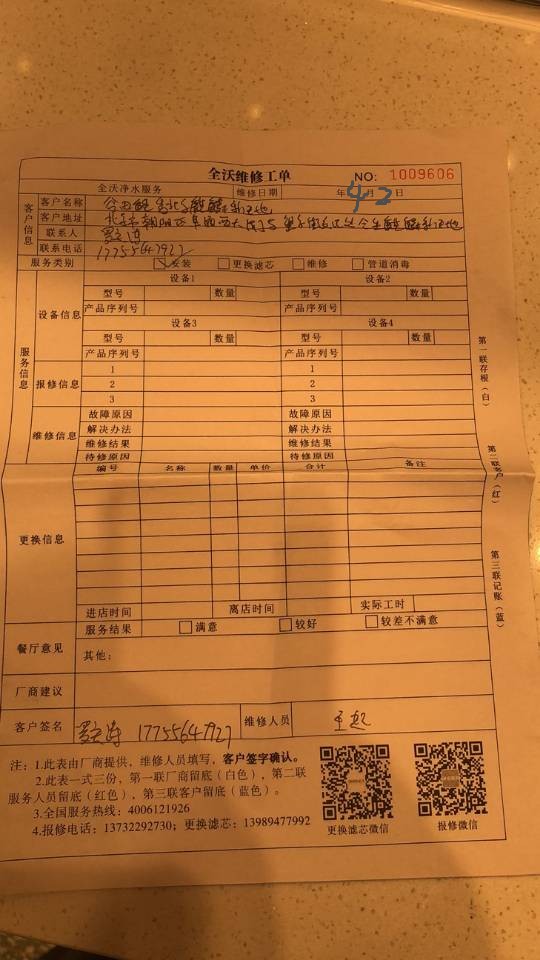 全沃维修工单 NO: 1009606
全沃净水服务 维修日期 年 4 月 2 日
客户信息
客户名称
客户地址
联系人
联系电话 17755647927
服务类别 安装 更换滤芯 维修 管道消毒
服务信息
设备信息
设备1 设备2
型号 数量 型号 数量
产品序列号 产品序列号
设备3 设备4
型号 数量 型号 数量
产品序列号 产品序列号
报修信息
1 1
2 2
3 3
维修信息
故障原因 故障原因
解决办法 解决办法
维修结果 维修结果
待修原因 待修原因
更换信息
编号 名称 数量 单价 合计 备注
进店时间 离店时间 实际工时
服务结果 满意 较好 较差不满意
餐厅意见 其他:
厂商建议
客户签名 17755647927 维修人员 王起
注:1.此表由厂商提供,维修人员填写,客户签字确认。
2.此表一式三份,第一联厂商留底(白色),第二联
服务人员留底(红色),第三联客户留底(蓝色)。
3.全国服务热线:4006121926
4.报修电话:13732292730;更换滤芯:13989477992
更换滤芯微信 报修微信
第一联存根(白)
第二联客户(红)
第三联记账(蓝)